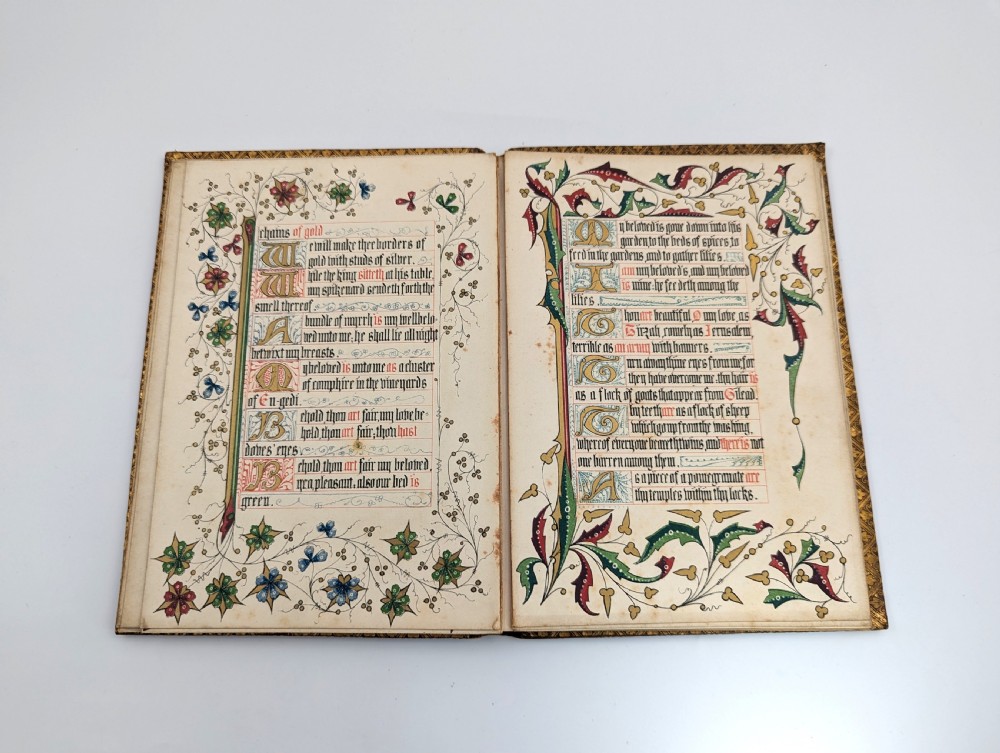 chains of gold
We will make thee borders of
gold with studs of silver.
While the king sitteth at his table,
my spikenard sendeth forth the
smell thereof
A bundle of myrrh is my wellbelo-
ved unto me; he shall lie all night
betwixt my breasts.
My beloved is unto me as a cluster
of camphire in the vineyards
of En-gedi.
Behold thou art fair, my love be-
hold, thou art fair; thou hast
doves' eyes
Behold thou art fair my beloved,
yea pleasant, also our bed is
green.
My beloved is gone down into his
garden to the beds of spices, to
feed in the gardens, and to gather lilies
I am my beloved's, and my beloved
is mine: he feedeth among the
lilies
Thou art beautiful O my love, as
Tirzah, comely as Jerusalem,
terrible as an army with banners.
Turn away thine eyes from me, for
they have overcome me, thy hair is
as a flock of goats that appear from Gilead.
Thy teeth are as a flock of sheep
which go up from the washing,
whereof every one beareth twins, and there is not
one barren among them.
As a piece of a pomegranate are
thy temples within thy locks.